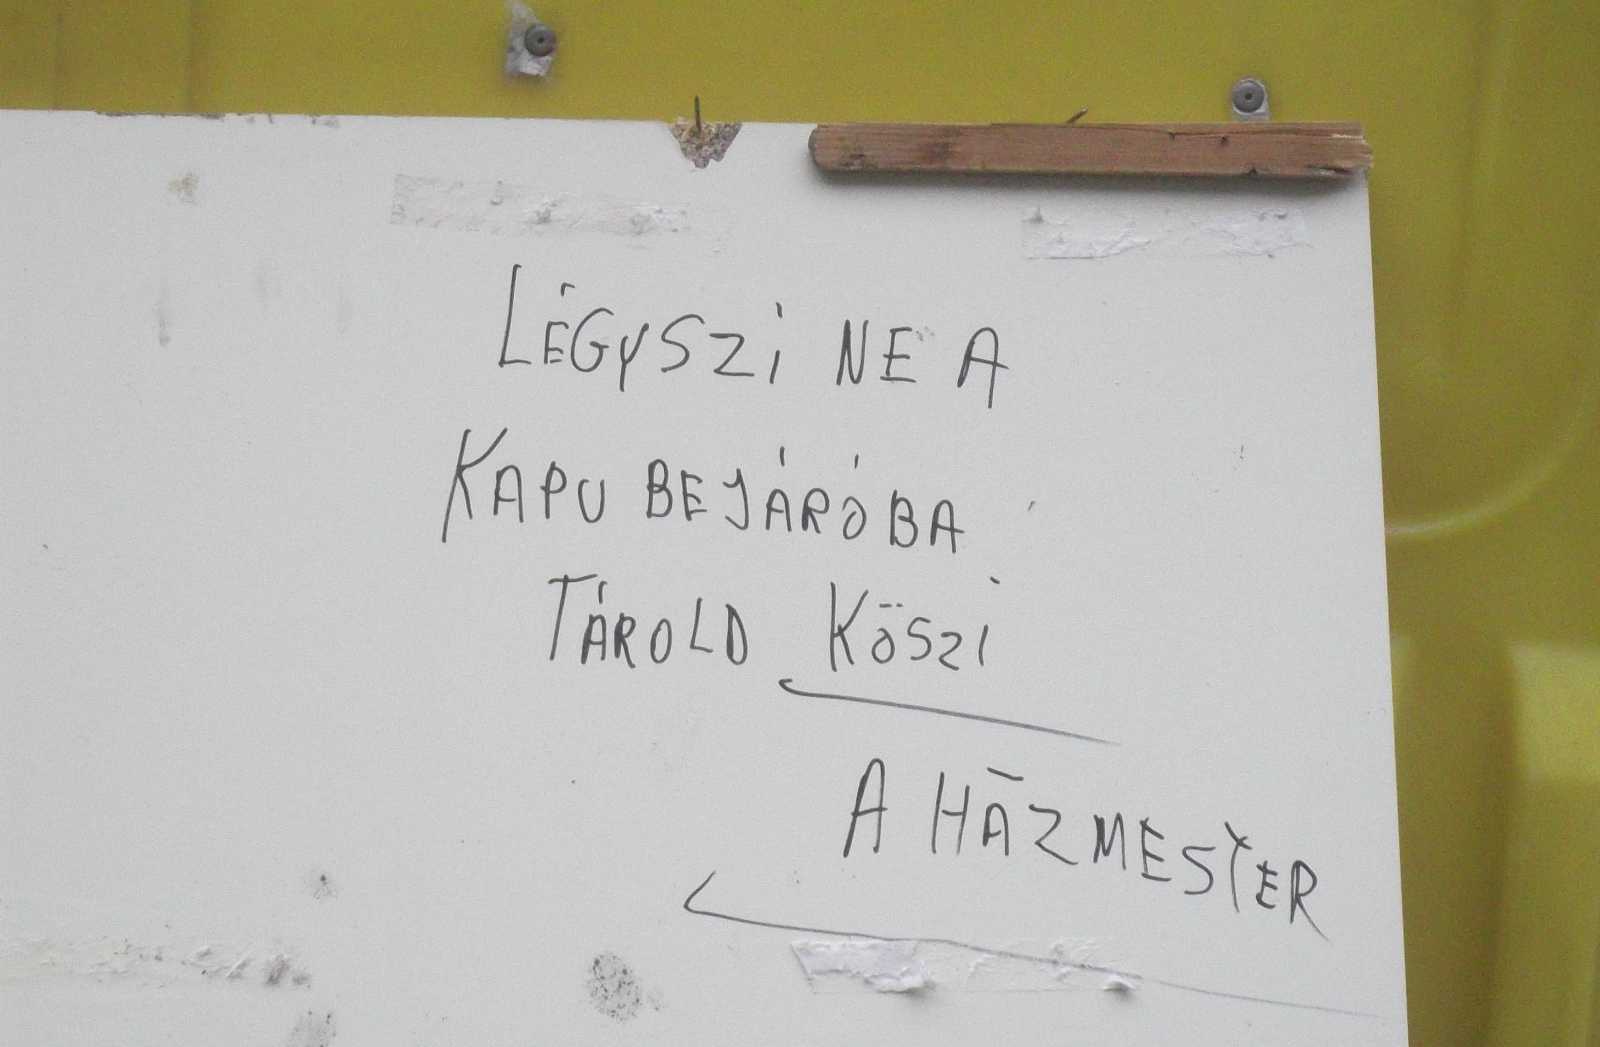 LÉGYSZI NE A
KAPU BEJÁRÓBA
TÁROLD KÖSZI
A HÁZMESTER